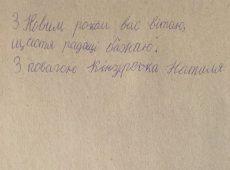 З Новим роком вас вітаю,
щастя радощі бажаю.
З повагою Наталя